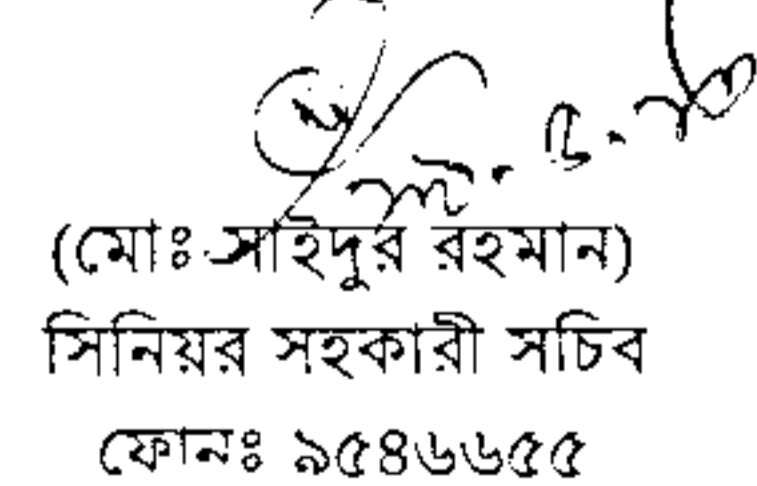 (মোঃ সাইদুর রহমান)
সিনিয়র সহকারী সচিব
ফোনঃ ৯৫৪৬৬৫৫